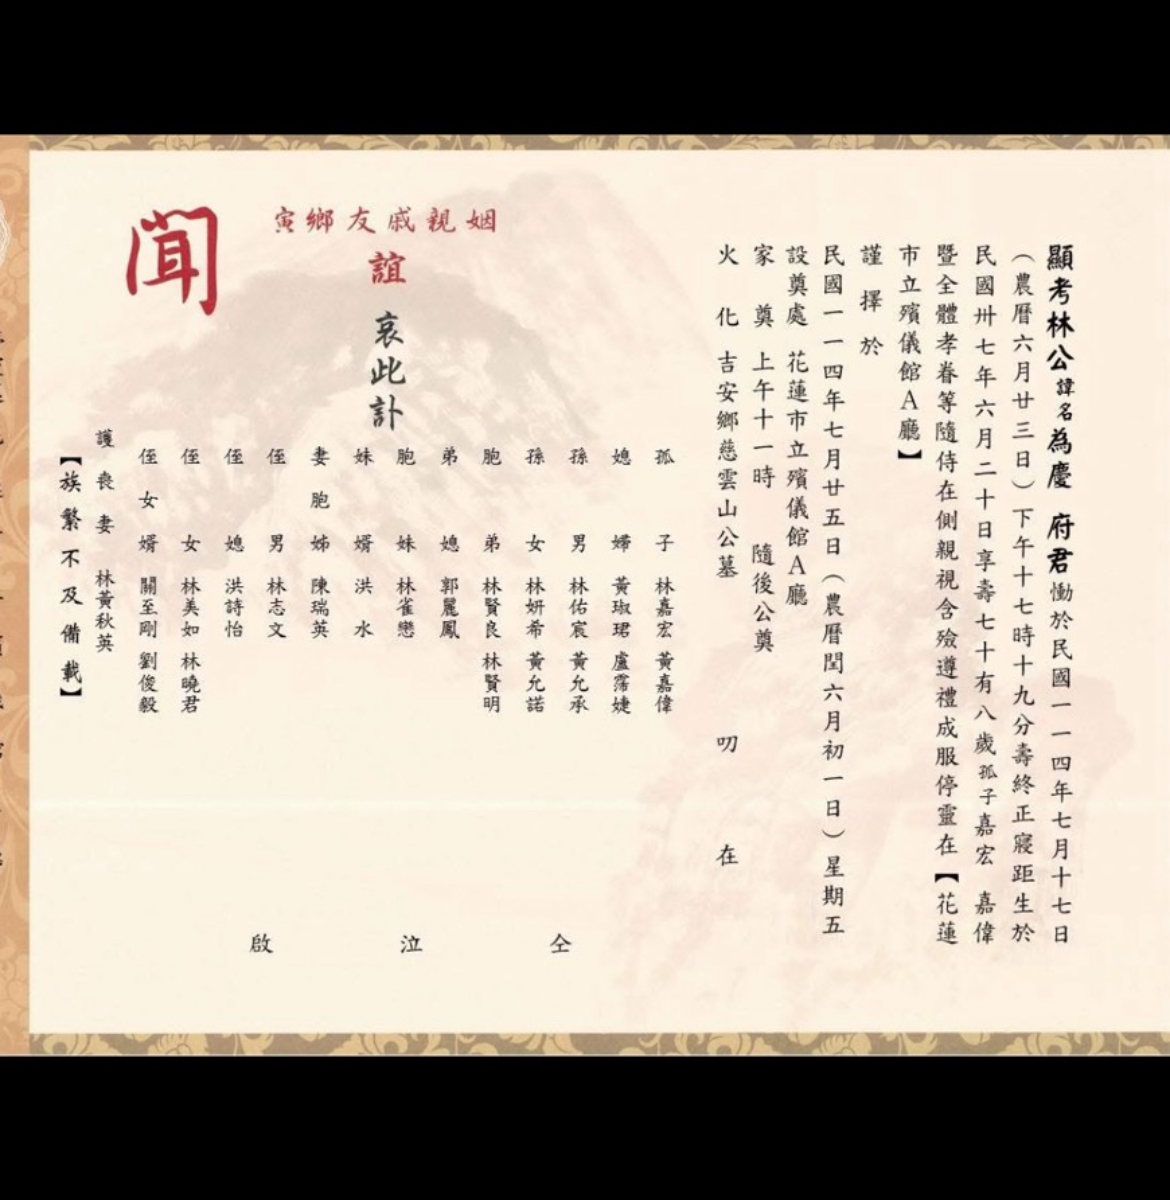 顯考林公諱名為慶 府君慟於民國一一四年七月十七日
（農曆六月廿三日）下午十七時十九分壽終正寢距生於
民國卅七年六月二十日享壽七十有八歲孤子嘉宏 嘉偉
暨全體孝眷等隨侍在側親視含殮遵禮成服停靈在【花蓮
市立殯儀館A廳】
謹擇於
民國一一四年七月廿五日（農曆閏六月初一日）星期五
設奠處 花蓮市立殯儀館A廳
家奠 上午十一時 隨後公奠
火化 吉安鄉慈雲山公墓 叨在
姻親戚友鄉寅
誼
哀此訃
聞
孤子 林嘉宏 黃嘉偉
媳婦 黃琡珺 盧霈婕
孫男 林佑宸 黃允承
孫女 林妍希 黃允諾
胞弟 林賢良 林賢明
弟媳 郭麗鳳
胞妹 林雀戀
妹婿 洪水
妻胞姊 陳瑞英
侄男 林志文
侄媳 洪詩怡
侄女 林美如 林曉君
侄女婿 關至剛 劉俊毅
護喪妻 林黃秋英
【族繁不及備載】
仝泣啟